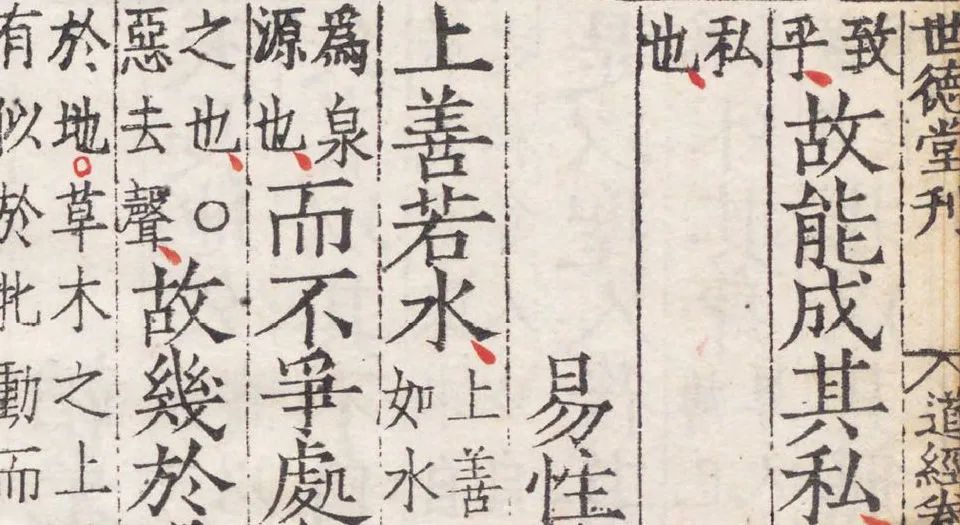 世德堂刊
道經
致
乎
故能成其私
私
也
易性
上善若水
上善
如水
爲泉
源也
而不爭處
之也○
惡去聲
故幾於
於地。草木之上
有似於牝動而